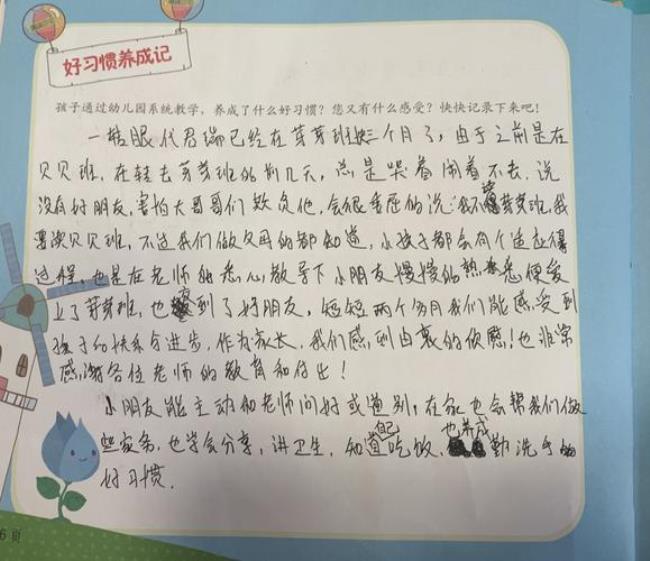 好习惯养成记
孩子通过幼儿园系统教学，养成了什么好习惯？您又有什么感受？快快记录下来吧！
一转眼代君瑞已经在芽芽班快三个月了，由于之前是在
贝贝班，在转去芽芽班的前几天，总是哭着闹着不去，说
没有好朋友，害怕大哥哥们欺负他，会很委屈的说"我不读芽芽班，我
要读贝贝班，不过我们做父母的都知道，小孩子都会有个适应得
过程，也是在老师的悉心教导下小朋友慢慢的熟悉便爱
上了芽芽班，也交到了好朋友，短短两个多月我们能感受到
孩子的快乐与进步，作为家长，我们感到由衷的欣慰！也非常
感谢各位老师的教育和付出！
小朋友能主动和老师问好或道别，在家也会帮我们做
些家务，也学会分享，讲卫生，知道自己吃饭，也养成勤洗手的
好习惯．
6页